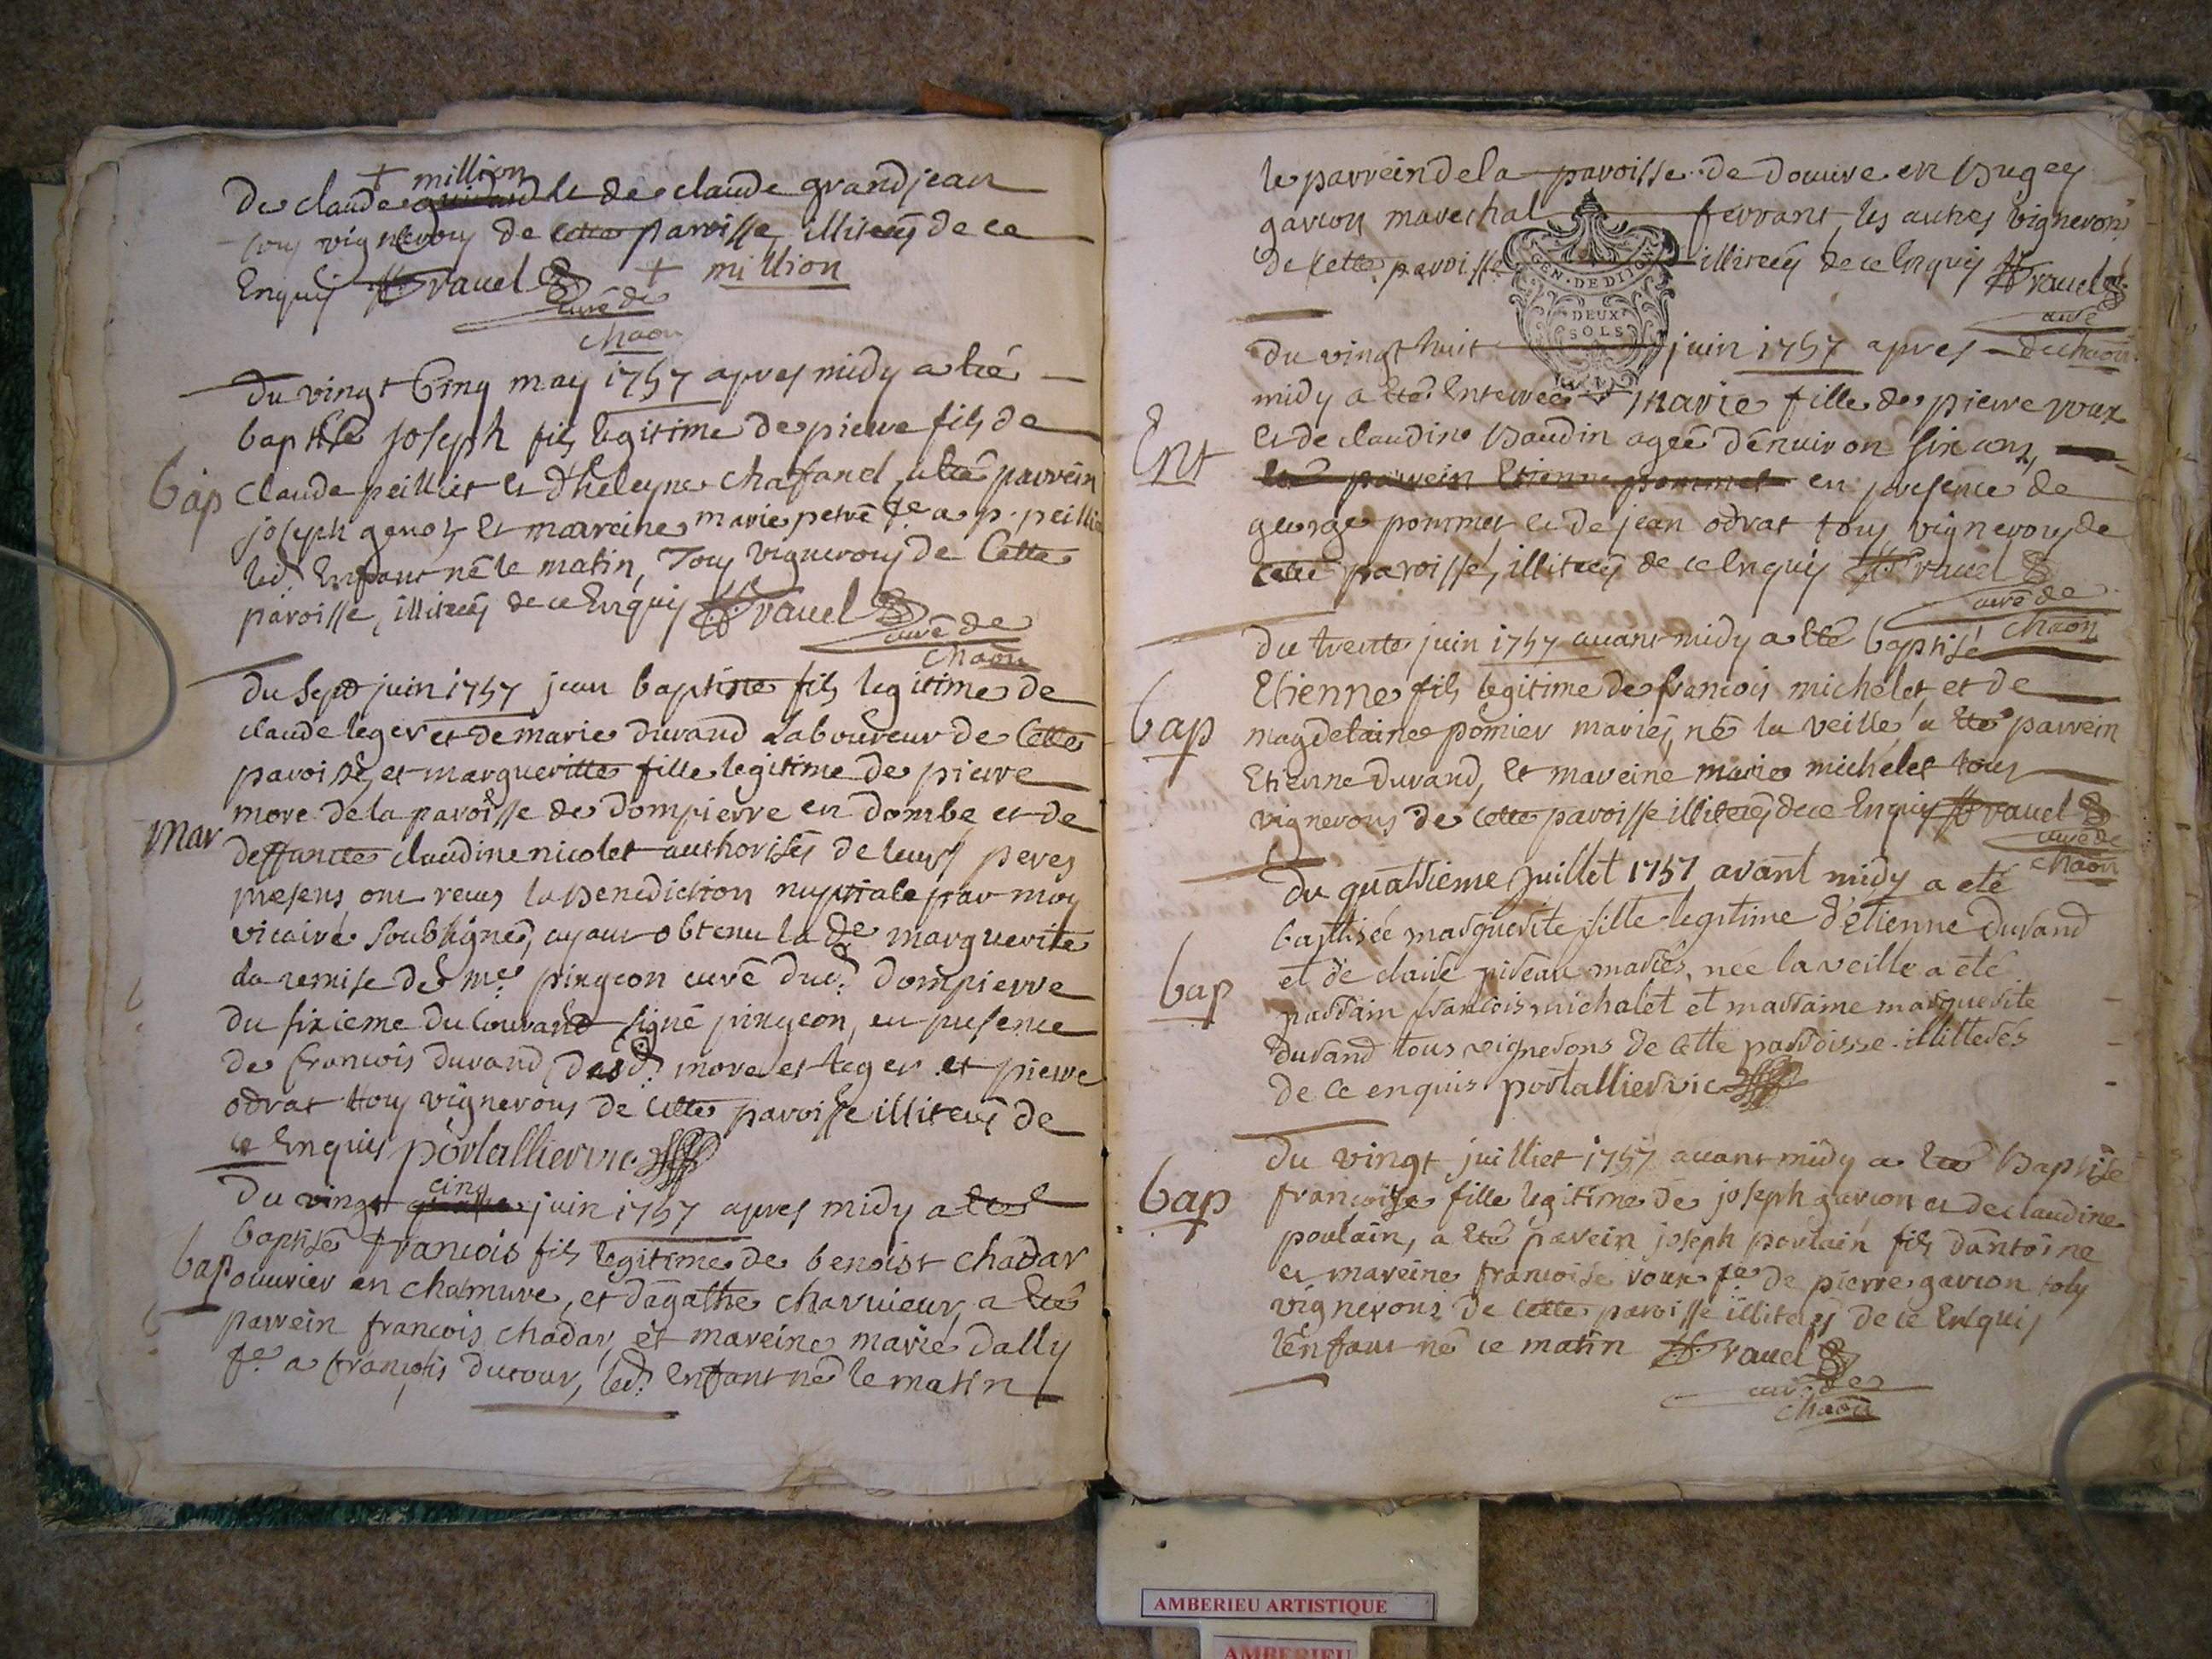 + million
De claude guichard et de claude grandjean
tous vignerons de cette paroisse, illiterés de ce
Enquis ravel + million
curé de
chaon
Du vingt Cinq may 1757 apres midy a eté
baptisé joseph fils legitime de pierre fils de
Bap
claude peilliet et d'heleyne chafanel, a eté parrein
joseph genot et mareine marie petré fe a p. peillie
led. Enfant né le matin, Tous vignerons de Cette
paroisse, illiterés de ce Enquis ravel
curé de
chaon
Du sept juin 1757 jean baptiste fils legitime de
claude leger et de marie durand Laboureur de Cette
paroisse, et margueritte fille legitime de pierre
more de la paroisse de Dompierre en dombe et de
Mar
deffuncte claudine nicolet authorisés de leurs peres
presens ont recus la Benediction nuptiale par moy
vicaire soubsigné, ayant obtenu la de marguerite
la remise de me pingeon curé dud. dompierre
du sixieme du Courand signé pingeon, en presence
de francois durand desd. more et leger et pierre
odrat tous vignerons de cette paroisse illiterés de
ce Enquis portallier vic.
cinq
Du vingt quatre juin 1757 apres midy a eté
baptisé francois fils legitime de benoist chadar
bap
ouvrier en chamure, et d'agathe charvieux, a eté
parrein francois chadar, et mareine marie dally
fe a francois ducour, led. Enfant né le matin
le parrein de la paroisse de Douvre en Bugey
garcon marechal ferrant, les autres vignerons
de Cette paroisse illiterés de ce Enquis ravel
GEN. DE DIJON
DEUX
SOLS
curé
de chaon
Du vingt huit juin 1757 apres
midy a eté Enterrée marie fille de pierre roux
Ent
Et de claudine Baudin agée d'environ six ans,
eté parrein Etienne pommet en presence de
george pommet et de jean odrat tous vignerons de
cette paroisse, illiterés de ce Enquis ravel
curé de
chaon
Du trente juin 1757 avant midy a eté baptisé
Etienne fils legitime de francois michelet, et de
bap
magdelaine pomier mariés, né la veille, a eté parrein
Etienne durand, Et mareine marie michelet tous
vignerons de Cette paroisse illiterés de ce Enquis ravel
curé de
chaon
Du quatrieme juillet 1757 avant midy a eté
baptisée marguerite fille legitime d'etienne durand
bap
et de claire mariés, née la veille a eté
parrain francois michalet et marraine marguerite
durand tous veignerons de cette parroisse illitterés
de ce enquis portallier vic
Du vingt juilliet 1757 avant midy a eté Baptisé
bap
francoise fille legitime de joseph garcon et de claudine
poulain, a eté parrein joseph poulain fils d'antoine
et mareine francoise roux fe de pierre garcon tous
vignerons de cette paroisse illiterés de ce Enquis
l'enfant né ce matin ravel
curé de
chaon
AMBERIEU ARTISTIQUE
AMBERIEU